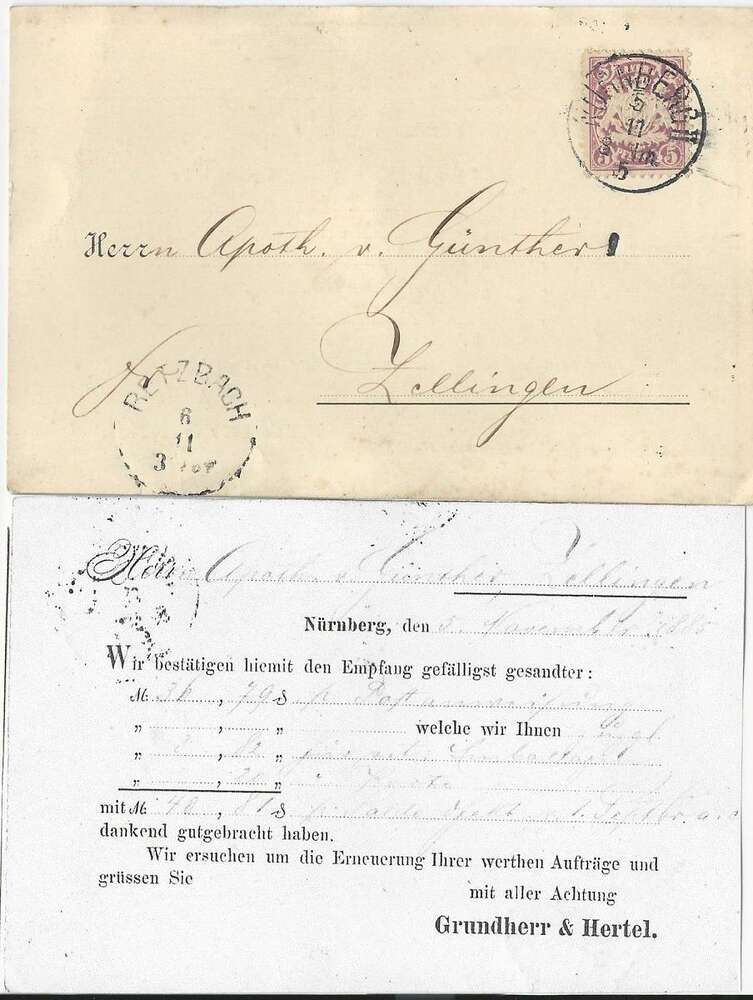 NÜRNBERG II
5
11
5
5 5
Herrn Apoth. v. Günther
Zellingen
RETZBACH
6
11
3
Herrn Apoth. v. Günther, Zellingen
Nürnberg, den 5. November 1885
Wir bestätigen hiemit den Empfang gefälligst gesandter:
M. 36, 79 ₰ p. Postanweisung
„ , „ welche wir Ihnen
„ , 82 „
„ , 20 „ Porto
mit M. 40, 81 ₰ p.
dankend gutgebracht haben.
Wir ersuchen um die Erneuerung Ihrer werthen Aufträge und
grüssen Sie
mit aller Achtung
Grundherr & Hertel.